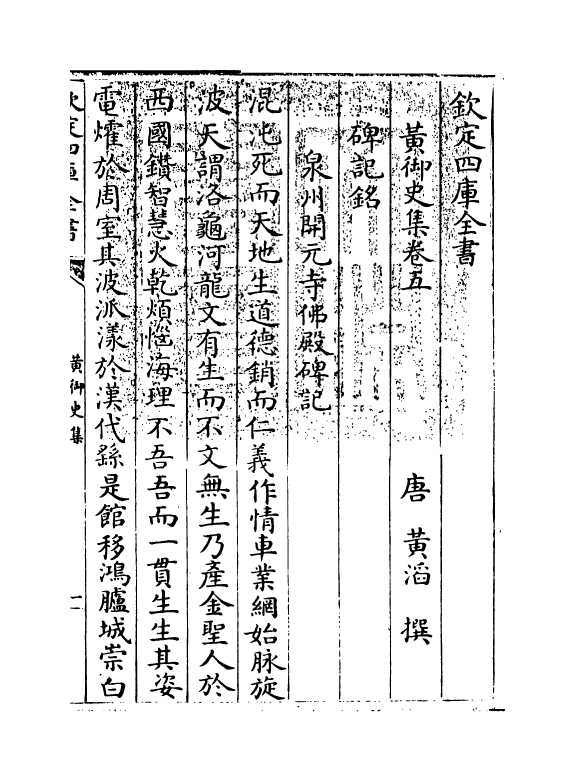 欽定四庫全書
黃御史集卷五
唐 黃滔 撰
碑記銘
泉州開元寺佛殿碑記
混沌死而天地生道德銷而仁義作情車業網始脉旋
波天謂洛龜河龍文有生而不文無生乃產金聖人於
西國鑽智慧火乾煩惱海理不吾吾而一貫生生其姿
電燿於周室其波派漾於漢代繇是館移鴻臚城崇白
欽定四庫全書
黃御史集
一